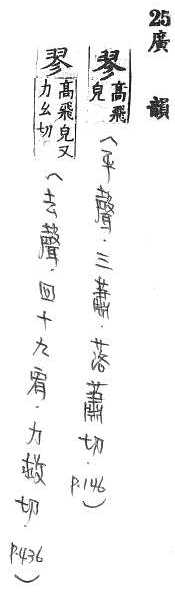 25廣韻
翏高飛皃（平聲．三蕭．落蕭切．P.146）
翏高飛皃又力幺切（去聲．四十九宥．力救切．P.436）